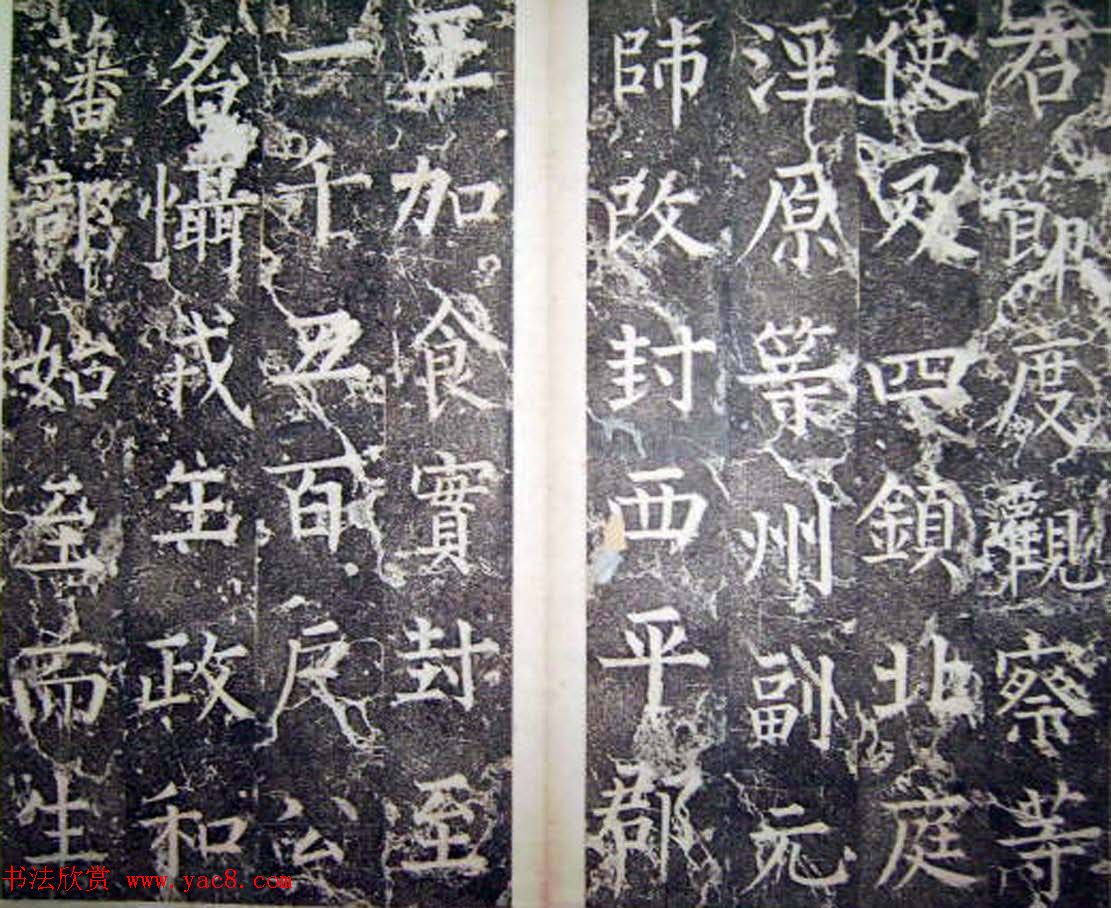 右節度觀察等
使又四鎮北庭
涇原等州副元
帥改封西平郡
王加食實封至
一千五百戶公
名懾戎政和
蕃部始至而生
书法欣赏 www.yac8.com